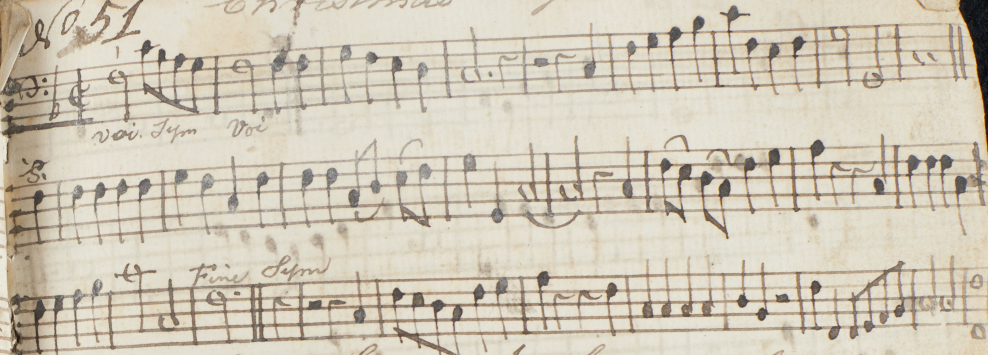 No. 51 Christmas
voi. Sym Voi
:S.
Fine Sym